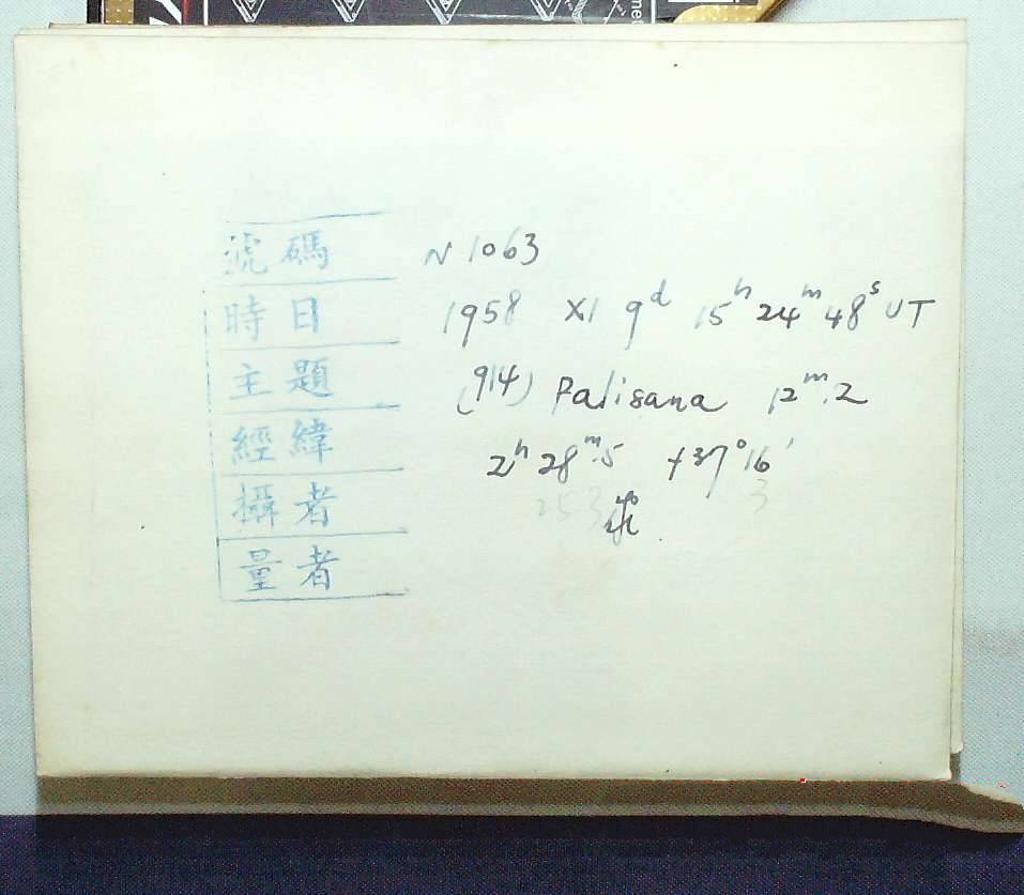 號碼 N 1063
時日 1958 XI 9ᵈ 15ʰ 24ᵐ 48ˢ UT
主題 (914) Palisana 12ᵐ.2
經緯 2ʰ 28ᵐ.5 +37°16'
攝者
253 3
量者